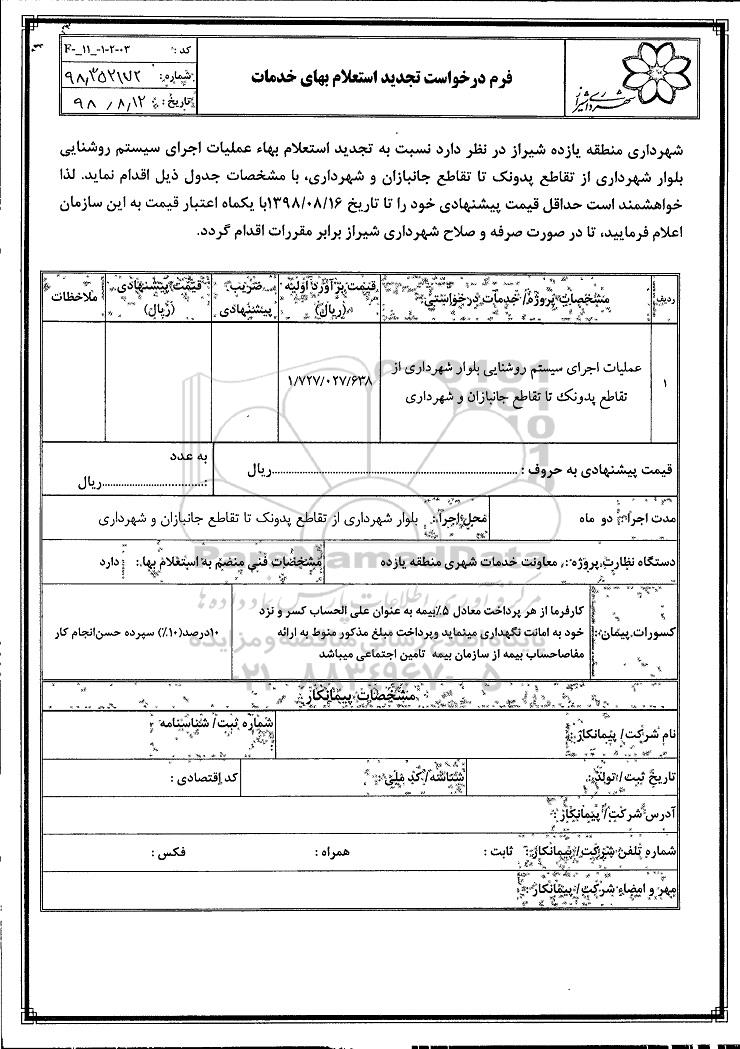 کد : F-_۱۱_-۱-۲-۰۳
شماره: ۹۸٫۳۵۲۱۷۲
تاریخ: ۹۸ / ۸ / ۱۲
فرم درخواست تجدید استعلام بهای خدمات
شهرداری شیراز
شهرداری منطقه یازده شیراز در نظر دارد نسبت به تجدید استعلام بهاء عملیات اجرای سیستم روشنایی
بلوار شهرداری از تقاطع پدونک تا تقاطع جانبازان و شهرداری، با مشخصات جدول ذیل اقدام نماید. لذا
خواهشمند است حداقل قیمت پیشنهادی خود را تا تاریخ ۱۳۹۸/۰۸/۱۶با یکماه اعتبار قیمت به این سازمان
اعلام فرمایید، تا در صورت صرفه و صلاح شهرداری شیراز برابر مقررات اقدام گردد.
ردیف مشخصات پروژه/ خدمات درخواستی: قیمت برآورد اولیه (ریال) ضریب پیشنهادی قیمت پیشنهادی (ریال) ملاحظات
۱ عملیات اجرای سیستم روشنایی بلوار شهرداری از ۱/۷۲۷/۰۲۷/۶۳۸
تقاطع پدونک تا تقاطع جانبازان و شهرداری
قیمت پیشنهادی به حروف : ............................ریال به عدد
:............................ریال
مدت اجرا: دو ماه محل اجرا: بلوار شهرداری از تقاطع پدونک تا تقاطع جانبازان و شهرداری
دستگاه نظارت پروژه: معاونت خدمات شهری منطقه یازده مشخصات فنی منضم به استعلام بها: دارد
کسورات پیمان: کارفرما از هر پرداخت معادل ۵٪بیمه به عنوان علی الحساب کسر و نزد
خود به امانت نگهداری مینماید وپرداخت مبلغ مذکور منوط به ارائه
مفاصاحساب بیمه از سازمان بیمه تامین اجتماعی میباشد
۱۰درصد(۱۰٪) سپرده حسن‌انجام کار
مشخصات پیمانکار
نام شرکت/ پیمانکار : شماره ثبت/ شناسنامه :
تاریخ ثبت/ تولد: شناسه/ کد ملی : کد اقتصادی :
آدرس شرکت/ پیمانکار :
شماره تلفن شرکت/ پیمانکار: ثابت : همراه : فکس :
مهر و امضاء شرکت/ پیمانکار :
ParsNamadData
۰۲۱-۸۸۳۴۹۶۷۰-۵